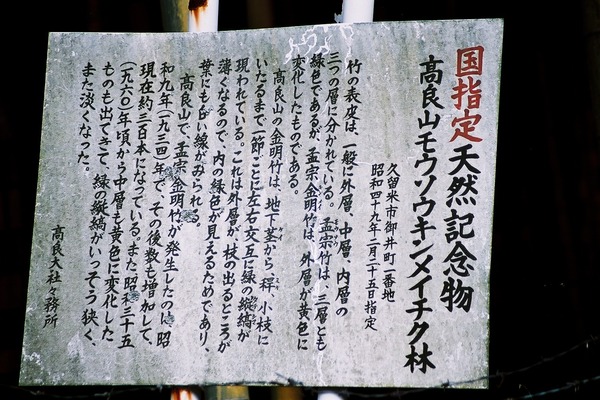 国指定天然記念物
高良山モウソウキンメイチク林
久留米市御井町一番地
昭和四十九年二月二十五日指定
竹の表皮は、一般に外層、中層、内層の
三つの層に分かれている。孟宗竹は、三層とも
緑色であるが、孟宗金明竹は、外層が黄色に
変化したものである。
高良山の金明竹は、地下茎から、稈、小枝に
いたるまで一節ごとに左右交互に緑の縦縞が
現われている。これは外層が、枝の出るところが
薄くなるので、内の緑色が見えるためであり、
葉にも白い線がみられる。
高良山で、孟宗金明竹が発生したのは、昭
和九年(一九三四)年で、その後数も増加して、
現在約三百本になっている。また昭和三十五
(一九六〇)年頃から中層も黄色に変化した
ものも出てきて、緑の縦縞がいっそう狭く、
また淡くなった。
高良大社々務所